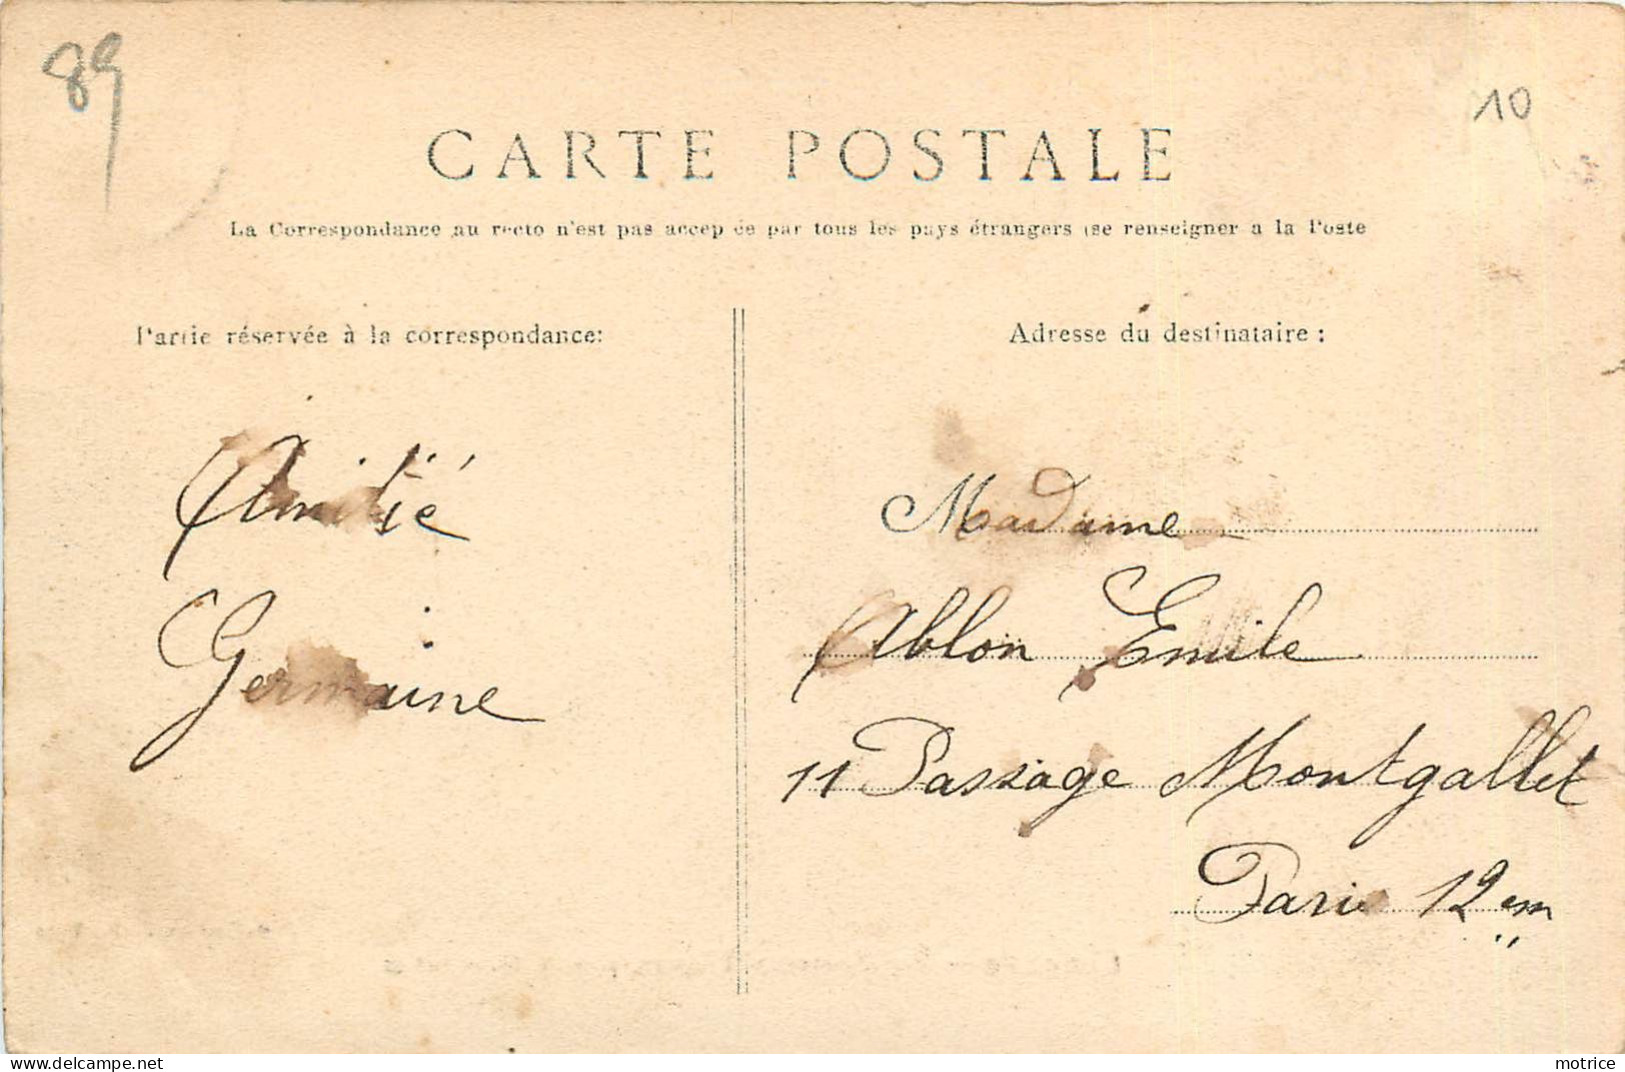 89
10
CARTE POSTALE
La Correspondance au recto n'est pas accep ée par tous les pays étrangers (se renseigner a la Poste
Partie réservée à la correspondance:
Adresse du destinataire :
Amitié
Germaine
Madame
Ablon Emile
11 Passage Montgallet
Paris 12em
delcampe.net
motrice